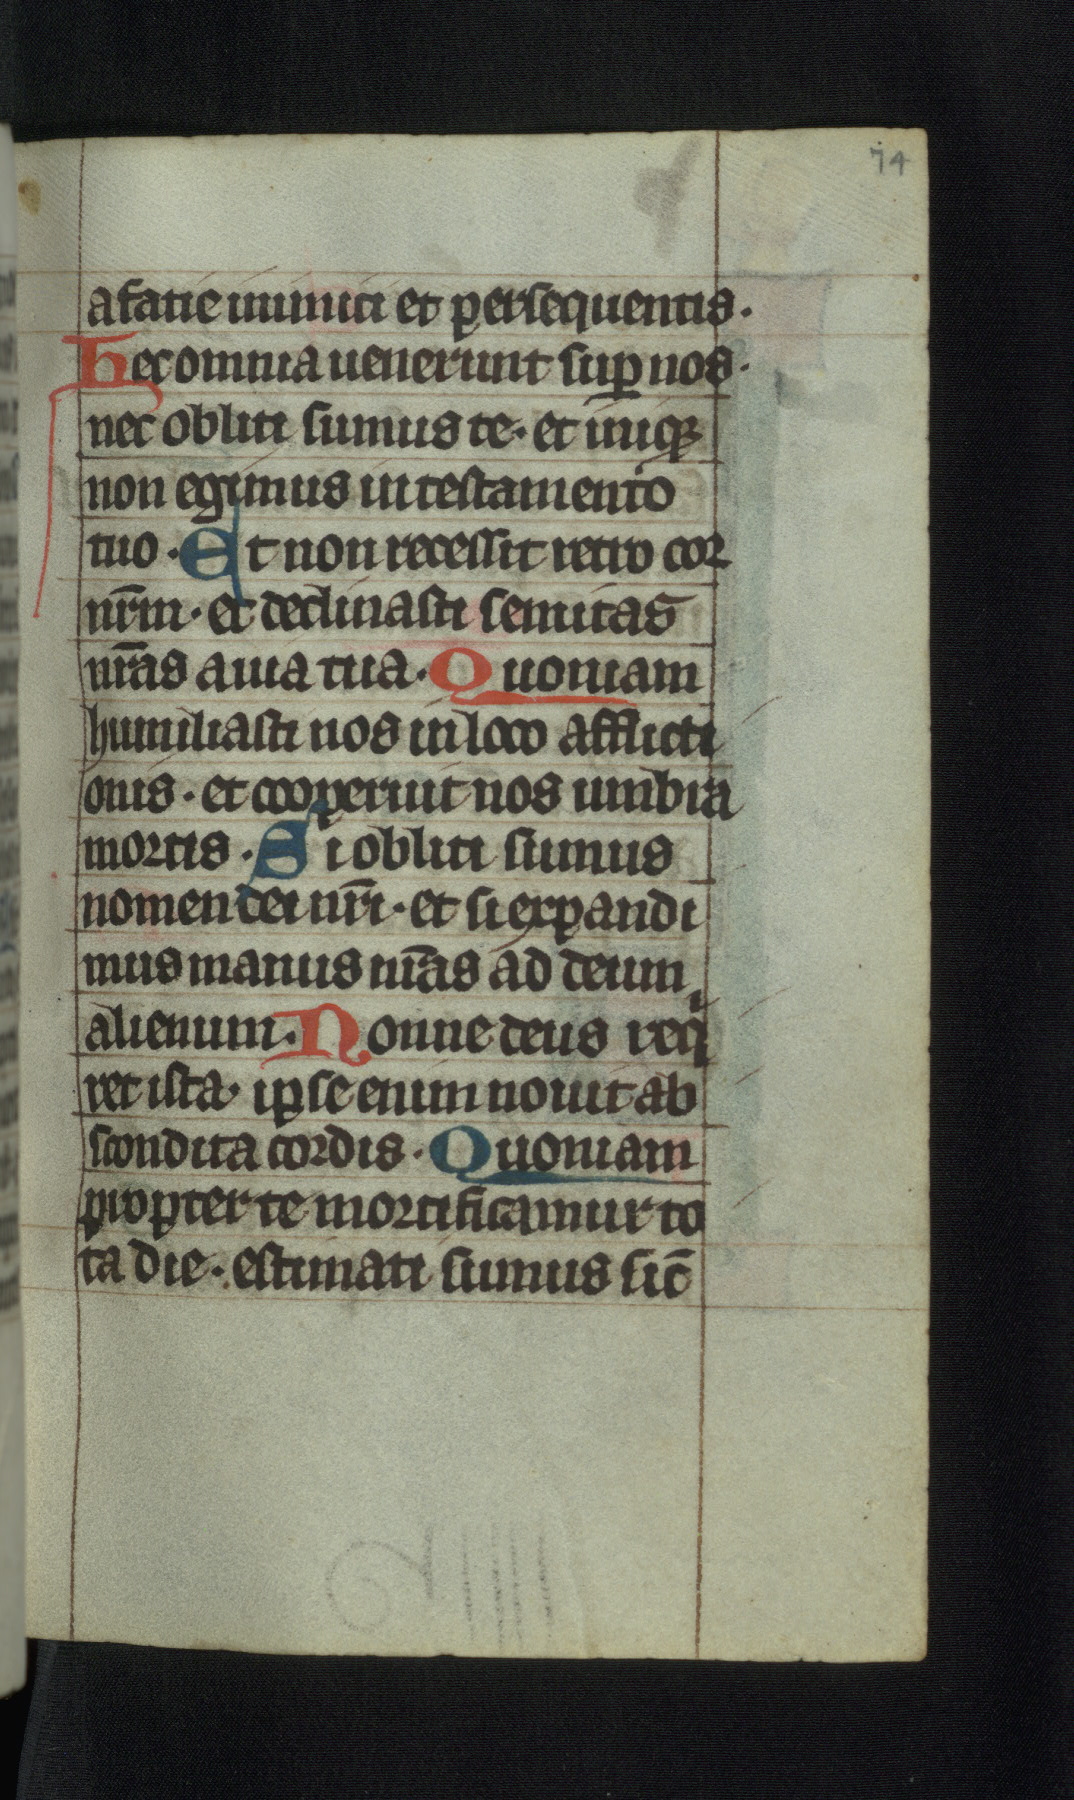 74
a facie inimici et persequentis.
Hec omnia uenerunt sup nos.
nec obliti sumus te. et iniq;
non egimus in testamento
tuo. Et non recessit retro cor
nr̄m. et declinasti semitas
nr̄as a uia tua. Quoniam
humiliasti nos in loco afflicti
onis. et cooperuit nos umbra
mortis. Si obliti sumus
nomen dei nr̄i. et si expandi
mus manus nr̄as ad deum
alienum. Nonne deus reqi
ret ista. ipse enim nouit ab
scondita cordis. Quoniam
propter te mortificamur to
ta die. estimati sumus sic̄